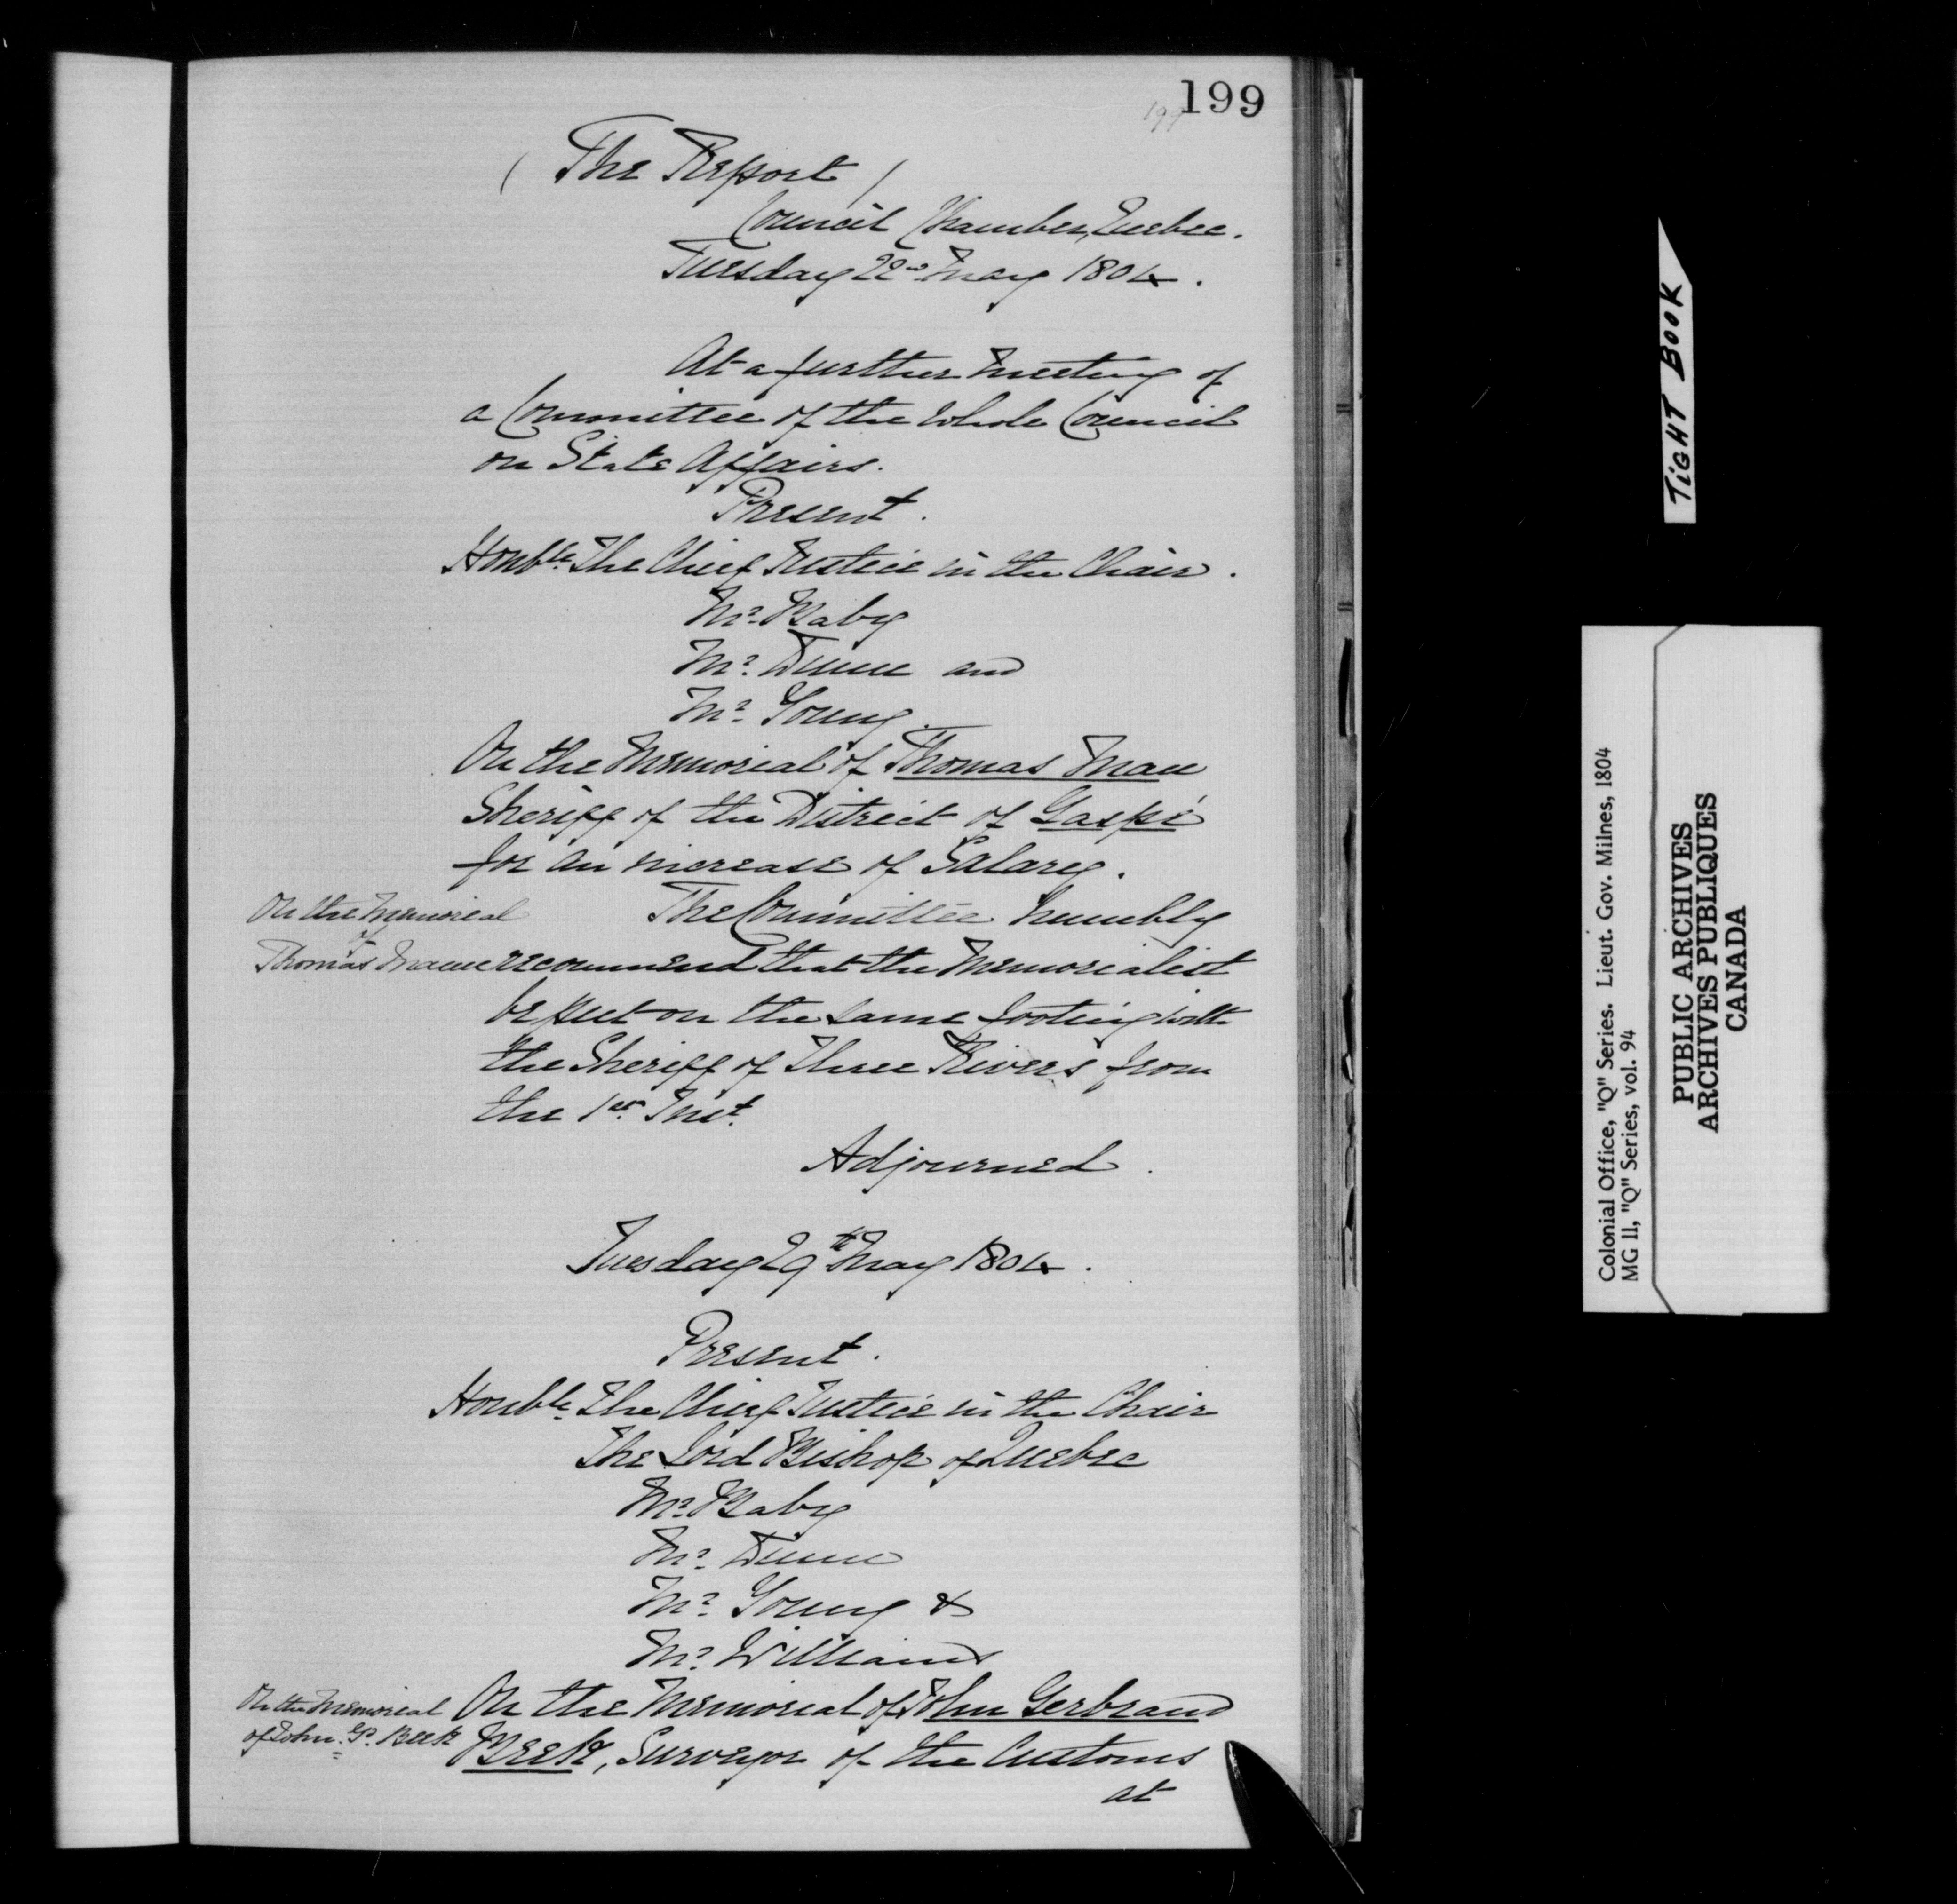 199
199
( The Report )
Council Chamber, Quebec.
Tuesday 22nd May 1804.
At a further Meeting of
a Committee of the whole Council
on State Affairs.
Present.
Honble. The Chief Justice in the Chair.
Mr. Baby
Mr. Dunn and
Mr. Young.
On the Memorial of Thomas Man
Sheriff of the District of Gaspé
for an increase of Salary.
On the Memorial
of
Thomas Mann
The Committee humbly
recommend that the Memorialist
be put on the same footing with
the Sheriff of Three Rivers from
the 1st. Inst.
Adjourned.
Tuesday 29th May 1804.
Present.
Honble. The Chief Justice in the Chair
The Lord Bishop of Quebec
Mr. Baby
Mr. Dunn
Mr. Young &
Mr. Williams
On the Memorial
of John. G. Beek
On the Memorial of John Gerbrand
Beek, Surveyor of the Customs
at
TIGHT BOOK
Colonial Office, "Q" Series. Lieut. Gov. Milnes, 1804
MG 11, "Q" Series, vol. 94
PUBLIC ARCHIVES
ARCHIVES PUBLIQUES
CANADA